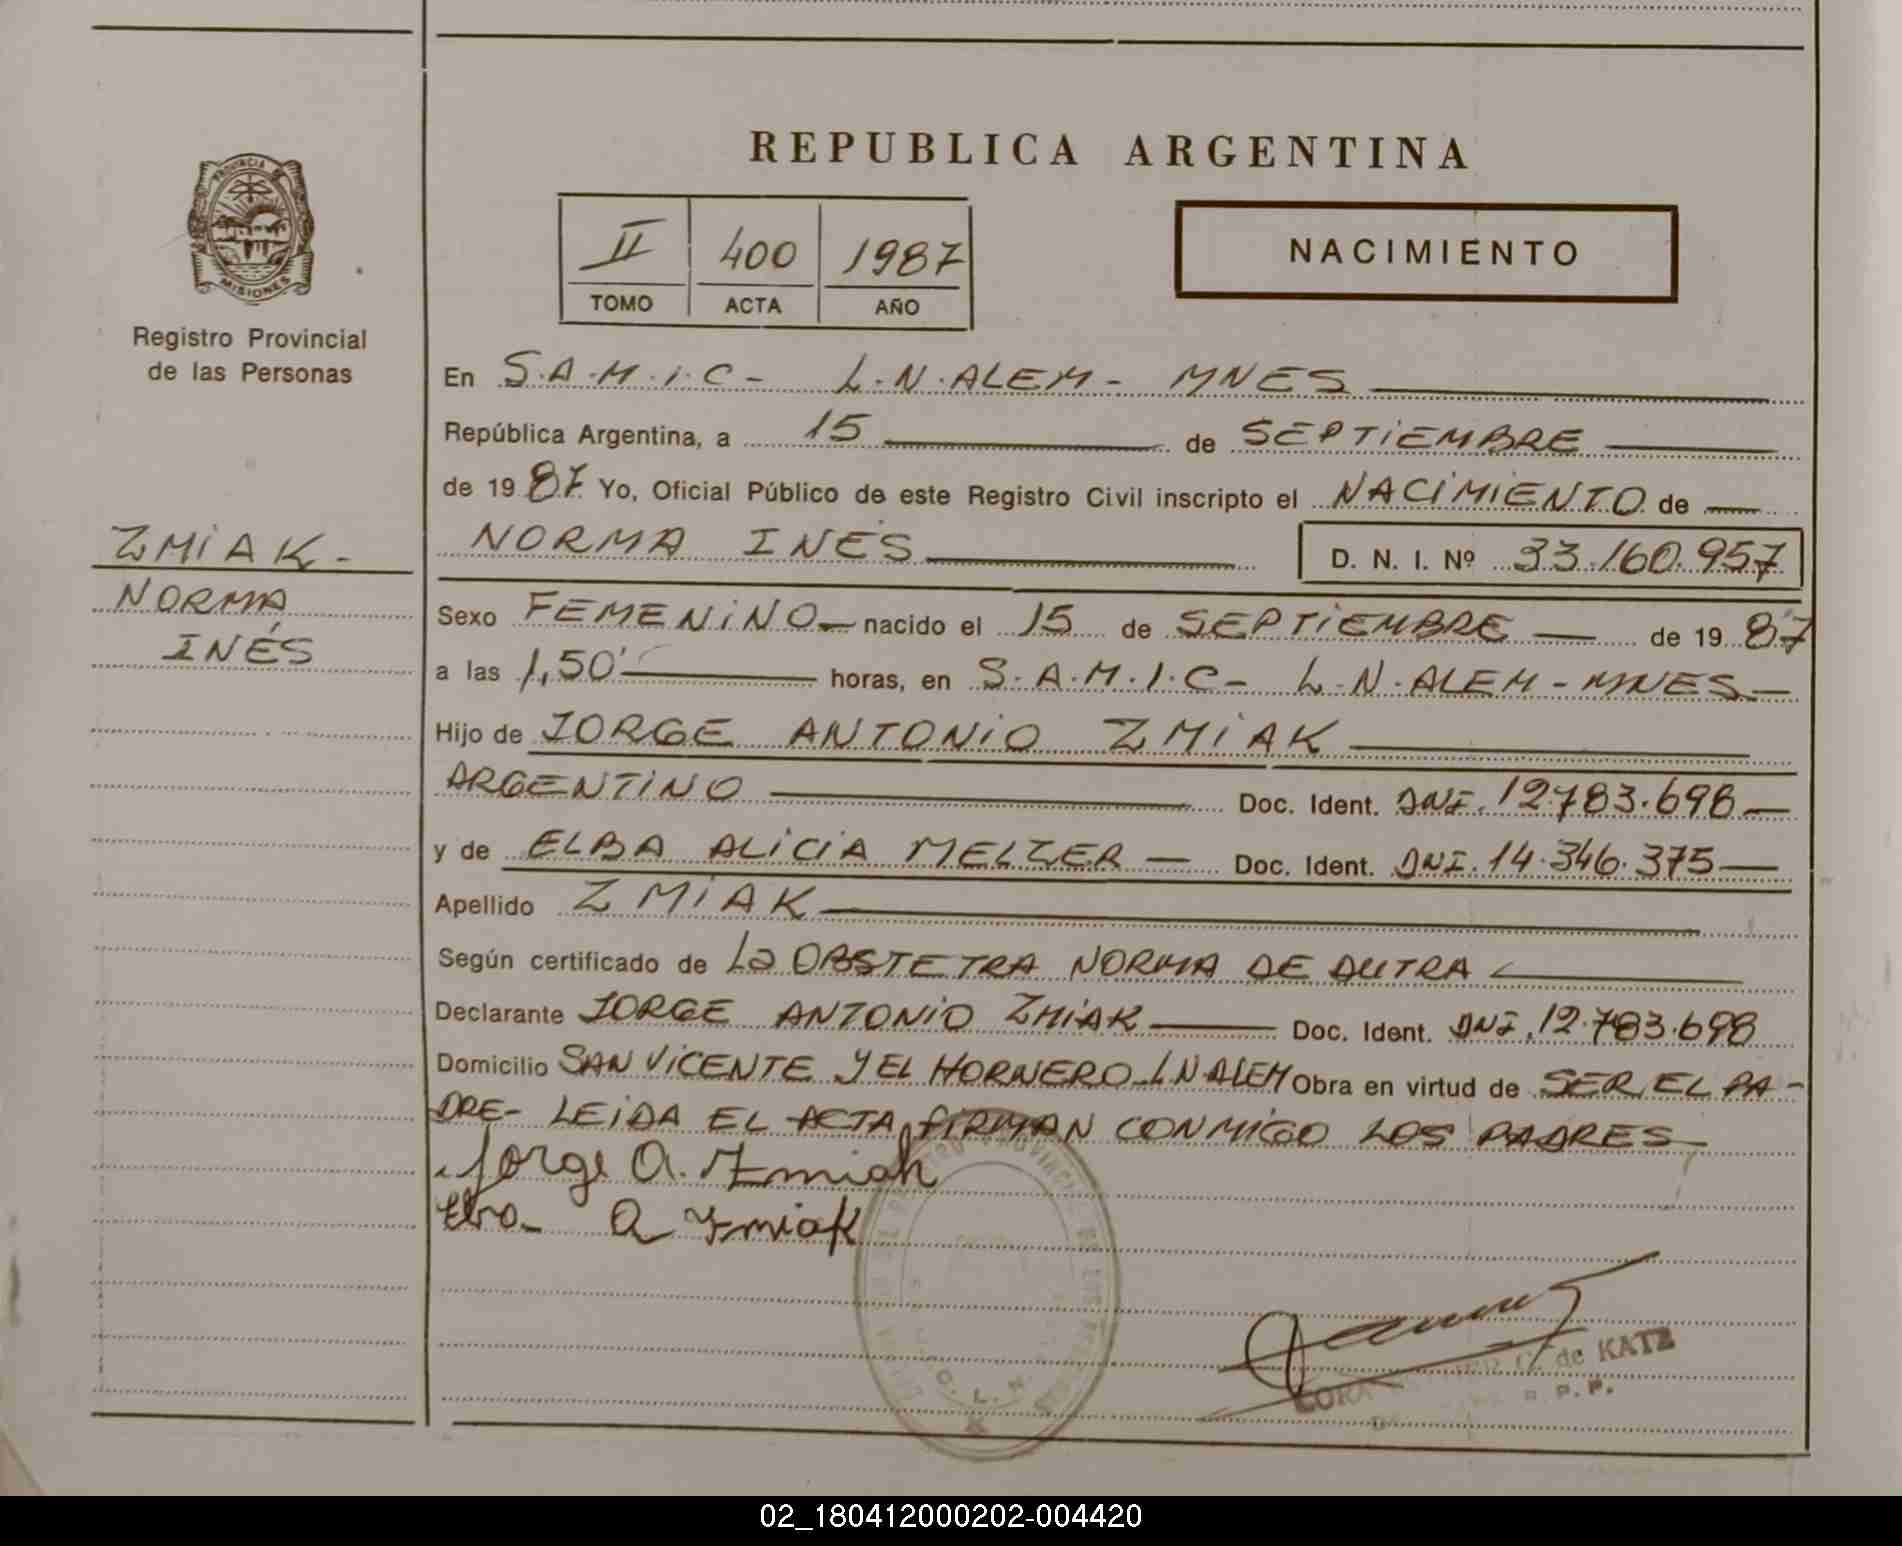 REPUBLICA ARGENTINA
PROVINCIA DE
MISIONES
Registro Provincial
de las Personas
II 400 1987
TOMO ACTA AÑO
NACIMIENTO
ZMIAK-
NORMA
INÉS
En S.A.M.I.C- L.N.ALEM- MNES
República Argentina, a 15 de SEPTIEMBRE
de 1987. Yo, Oficial Público de este Registro Civil inscripto el NACIMIENTO de
NORMA INÉS D. N. I. Nº 33.160.957
Sexo FEMENINO nacido el 15 de SEPTIEMBRE de 1987
a las 1,50' horas, en S.A.M.I.C- L.N.ALEM-MNES-
Hijo de JORGE ANTONIO ZMIAK
ARGENTINO Doc. Ident. DNI. 12.783.698-
y de ELBA ALICIA MELZER Doc. Ident. DNI. 14.346.375
Apellido ZMIAK
Según certificado de La OBSTETRA NORMA DE DUTRA
Declarante JORGE ANTONIO ZMIAK Doc. Ident. DNI. 12.783.698
Domicilio SAN VICENTE Y EL HORNERO-LN ALEM Obra en virtud de SER EL PA-
DRE- LEIDA EL ACTA FIRMAN CONMIGO LOS PADRES
Jorge A. Zmiak
Elva A Zmiak
C. de KATZ
02_180412000202-004420